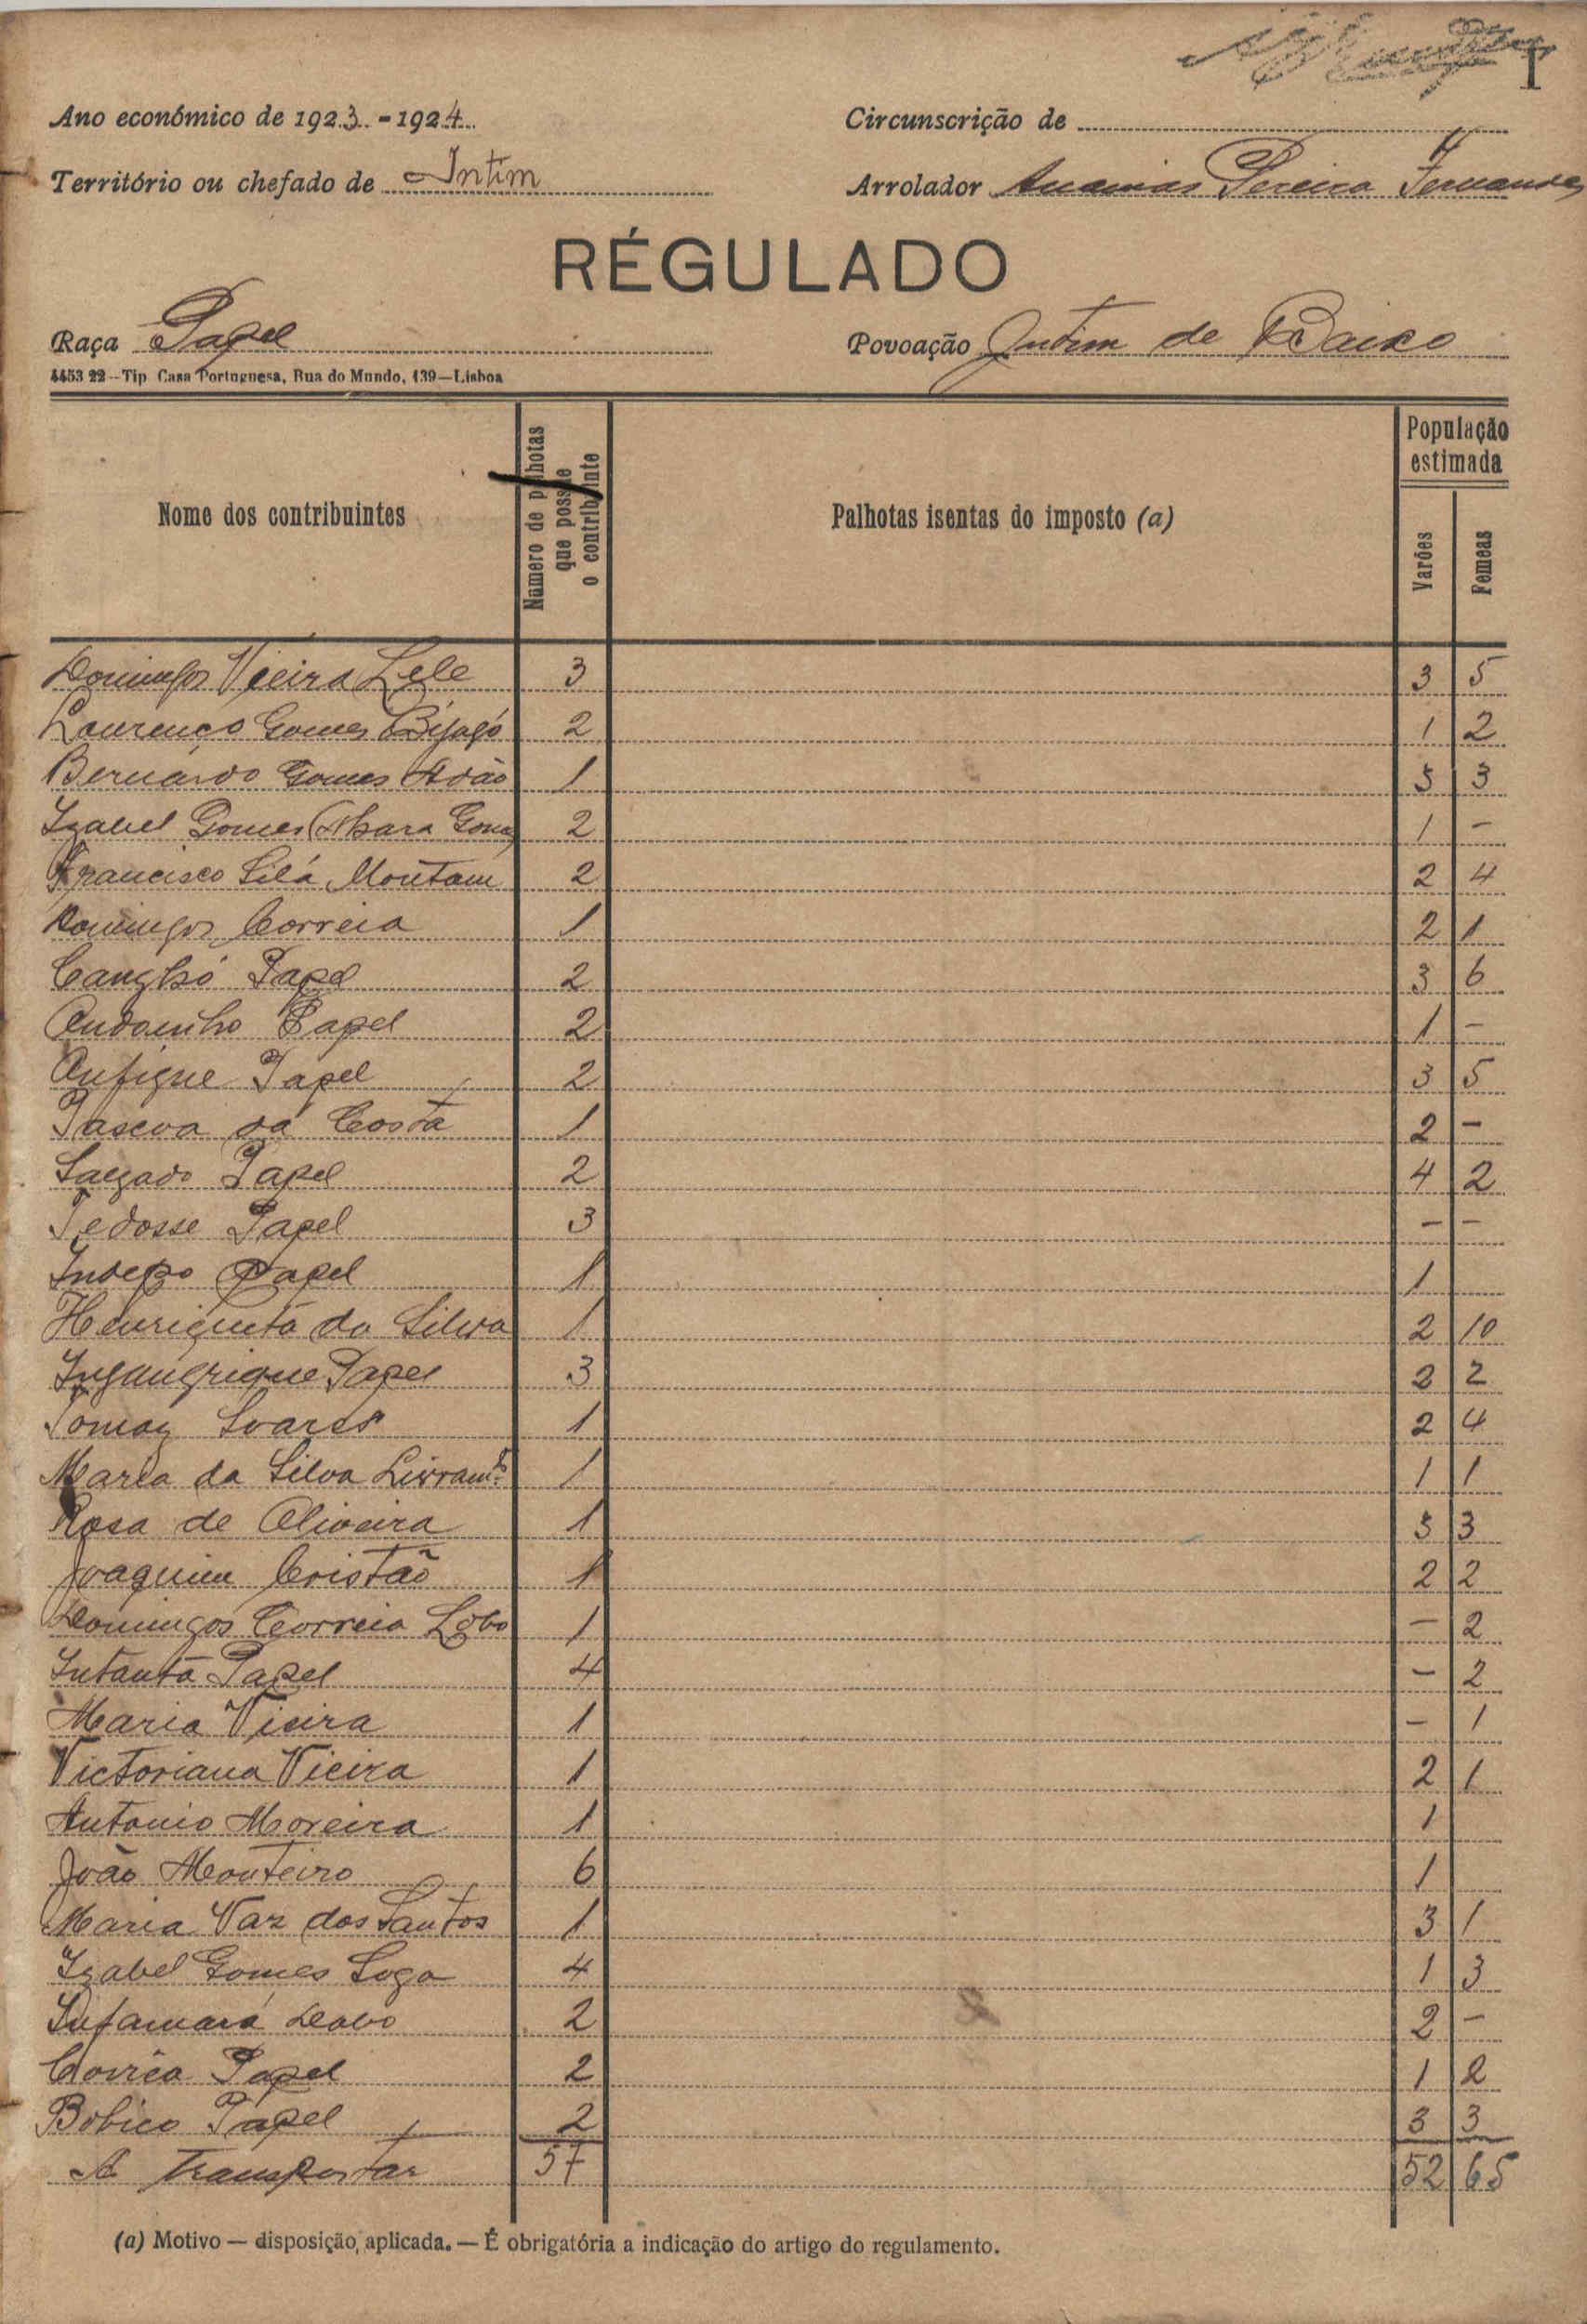 I
Ano económico de 1923-1924
Circunscrição de
Território ou chefado de Intim
Arrolador Ananias Pereira Fernandes
RÉGULADO
Raça Papel
Povoação Intim de Baixo
4453 22--Tip Casa Portuguesa, Rua do Mundo, 139--Lisboa
Nome dos contribuintes
Numero de palhotas que possue o contribuinte
Palhotas isentas do imposto (a)
População estimada
Varões
Femeas
Domingos Vieira Lele 3 3 5
Lourenço Gomes Bijagó 2 1 2
Bernardo Gomes Adão 1 3 3
Izabel Gomes 2 1 -
Francisco Silá Montam 2 2 4
Domingos Correia 1 2 1
Papel 2 3 6
Papel 2 1 -
Papel 2 3 5
Pascoa da Costa 1 2 -
Papel 2 4 2
Papel 3 - -
Papel 1 1
Henriqueta da Silva 1 2 10
Papel 3 2 2
Tomaz Soares 1 2 4
Maria da Silva Livramto 1 1 1
Rosa de Oliveira 1 3 3
Joaquim Cristão 1 2 2
Domingos Correia Lobo 1 - 2
Intanta Papel 4 - 2
Maria Vieira 1 - 1
Victoriana Vieira 1 2 1
Antonio Moreira 1 1
João Monteiro 6 1
Maria Vaz dos Santos 1 3 1
Izabel Gomes Soga 4 1 3
Infamará 2 2 -
Papel 2 1 2
Bobico Papel 2 3 3
A Transportar 57 52 65
(a) Motivo — disposição, aplicada. — É obrigatória a indicação do artigo do regulamento.